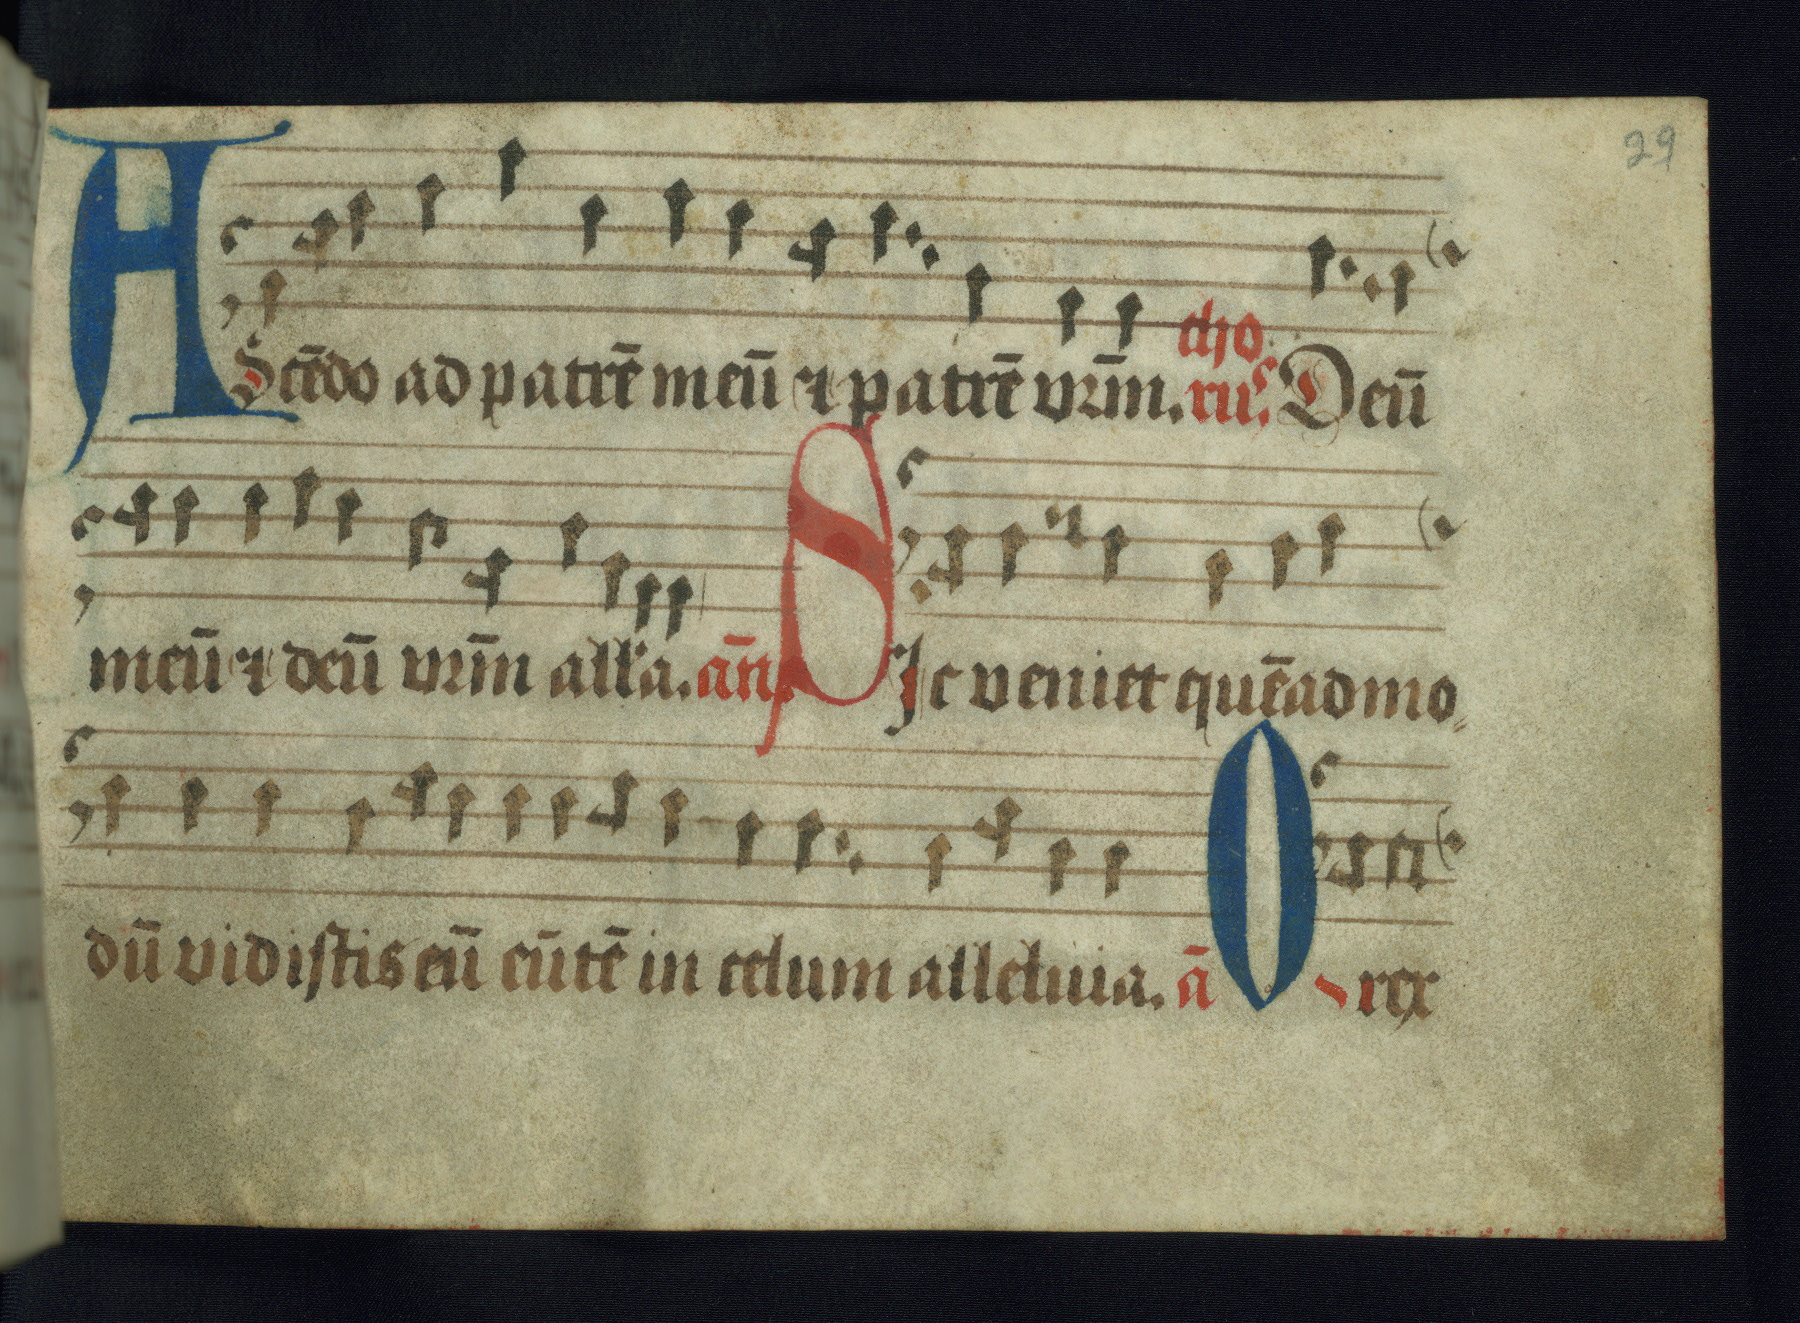 29
AScēdo ad patrē meū ⁊ patrē vr̄m. chorꝰ. Deū
meū ⁊ deū vr̄m all'a. an̄. SIc veniet quēadmo
dū vidistis eū eūtē in celum alleluia. ā O rex